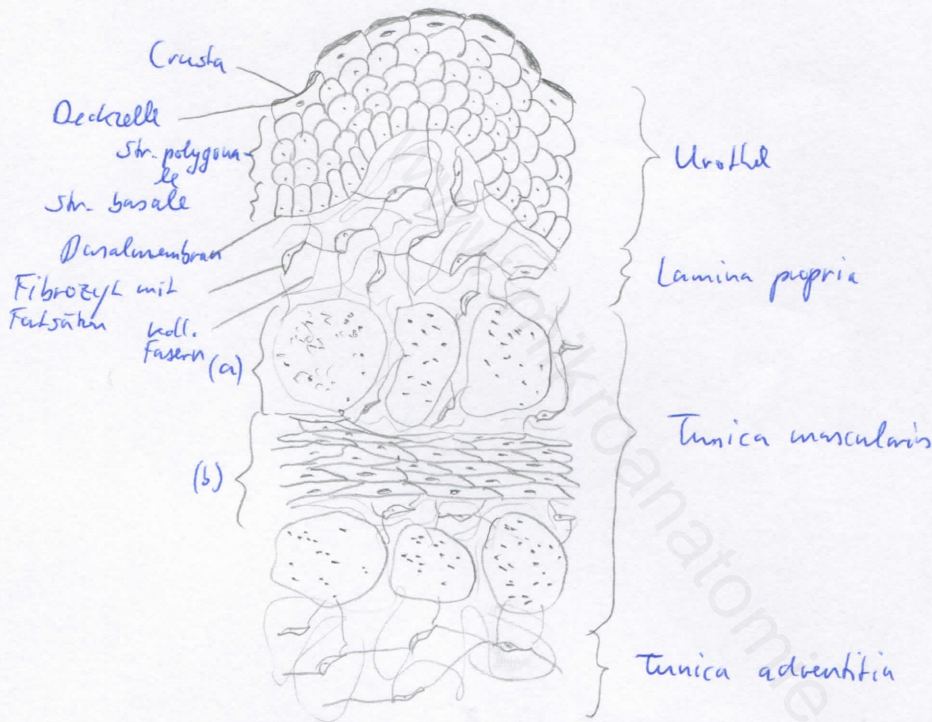 Crusta
Deckzelle
Str. polygona
le
Str. basale
Basalmembran
Fibrozyt mit
Fortsätzen
koll.
Fasern
(a)
(b)
Urothel
Lamina propria
Tunica muscularis
Tunica adventitia
mikroanatomie